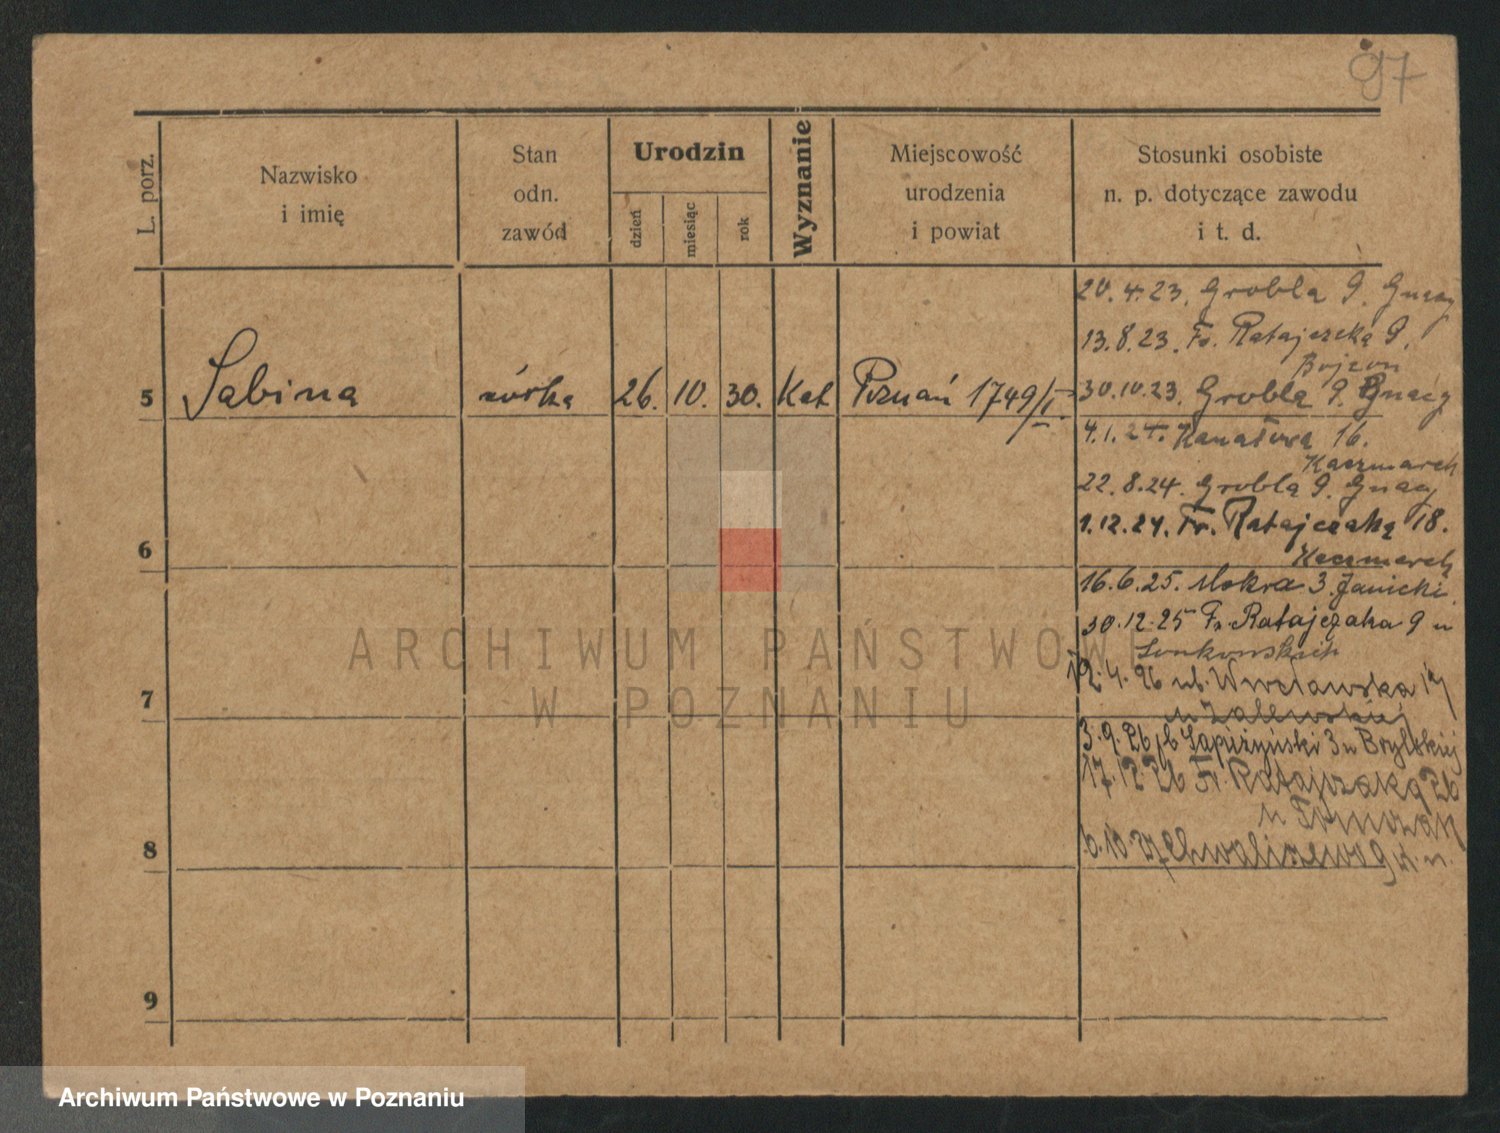 97
L. porz.
Nazwisko
i imię
Stan
odn.
zawód
Urodzin
dzień
miesiąc
rok
Wyznanie
Miejscowość
urodzenia
i powiat
Stosunki osobiste
n. p. dotyczące zawodu
i t. d.
20.4.23. Grobla 9. Gnacy
13.8.23. Fr. Ratajczaka 9.
30.10.23. Grobla 9. Gnacy
5 Sabina córka 26. 10. 30. Kat Poznań 1749/I.
4.1.24. 16.
Kaczmarek
22.8.24. Grobla 9. Gnacy
1.12.24. Fr. Ratajczaka 18.
Kaczmarek
6
16.6.25. Mokra 3. Janicki
30.12.25 Fr. Ratajczaka 9 u
12.4.26 ul. Wrocławska 17
7
u Zalewskiej
3.9.26 3 u
17.12.26 Fr. Ratajczaka 26
u
8
6.10.27 Chwaliszewo
9
ARCHIWUM PAŃSTWOWE
W POZNANIU
Archiwum Państwowe w Poznaniu